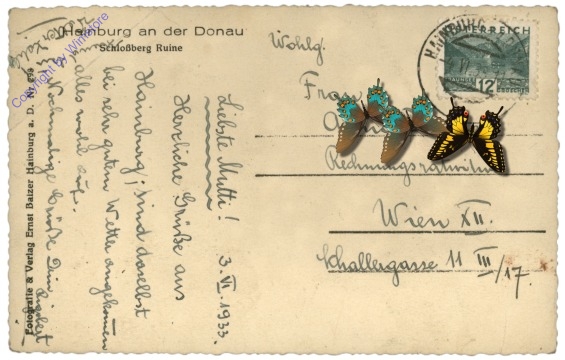 Hainburg an der Donau
Schloßberg Ruine
Copyright by Winimore
Fotografie & Verlag Ernst Baizer Hainburg a. D. Nr.
Liebste Mutti!
3.VI.1933.
Herzliche Grüße aus
Hainburg, sind daselbst
bei sehr gutem Wetter angekommen
alles wohl auf.
Nochmalige Grüße Dein
Wohlg.
Frau
Wien XII.
Schallergasse 11 III/17.
HAINBURG
ÖSTERREICH
12